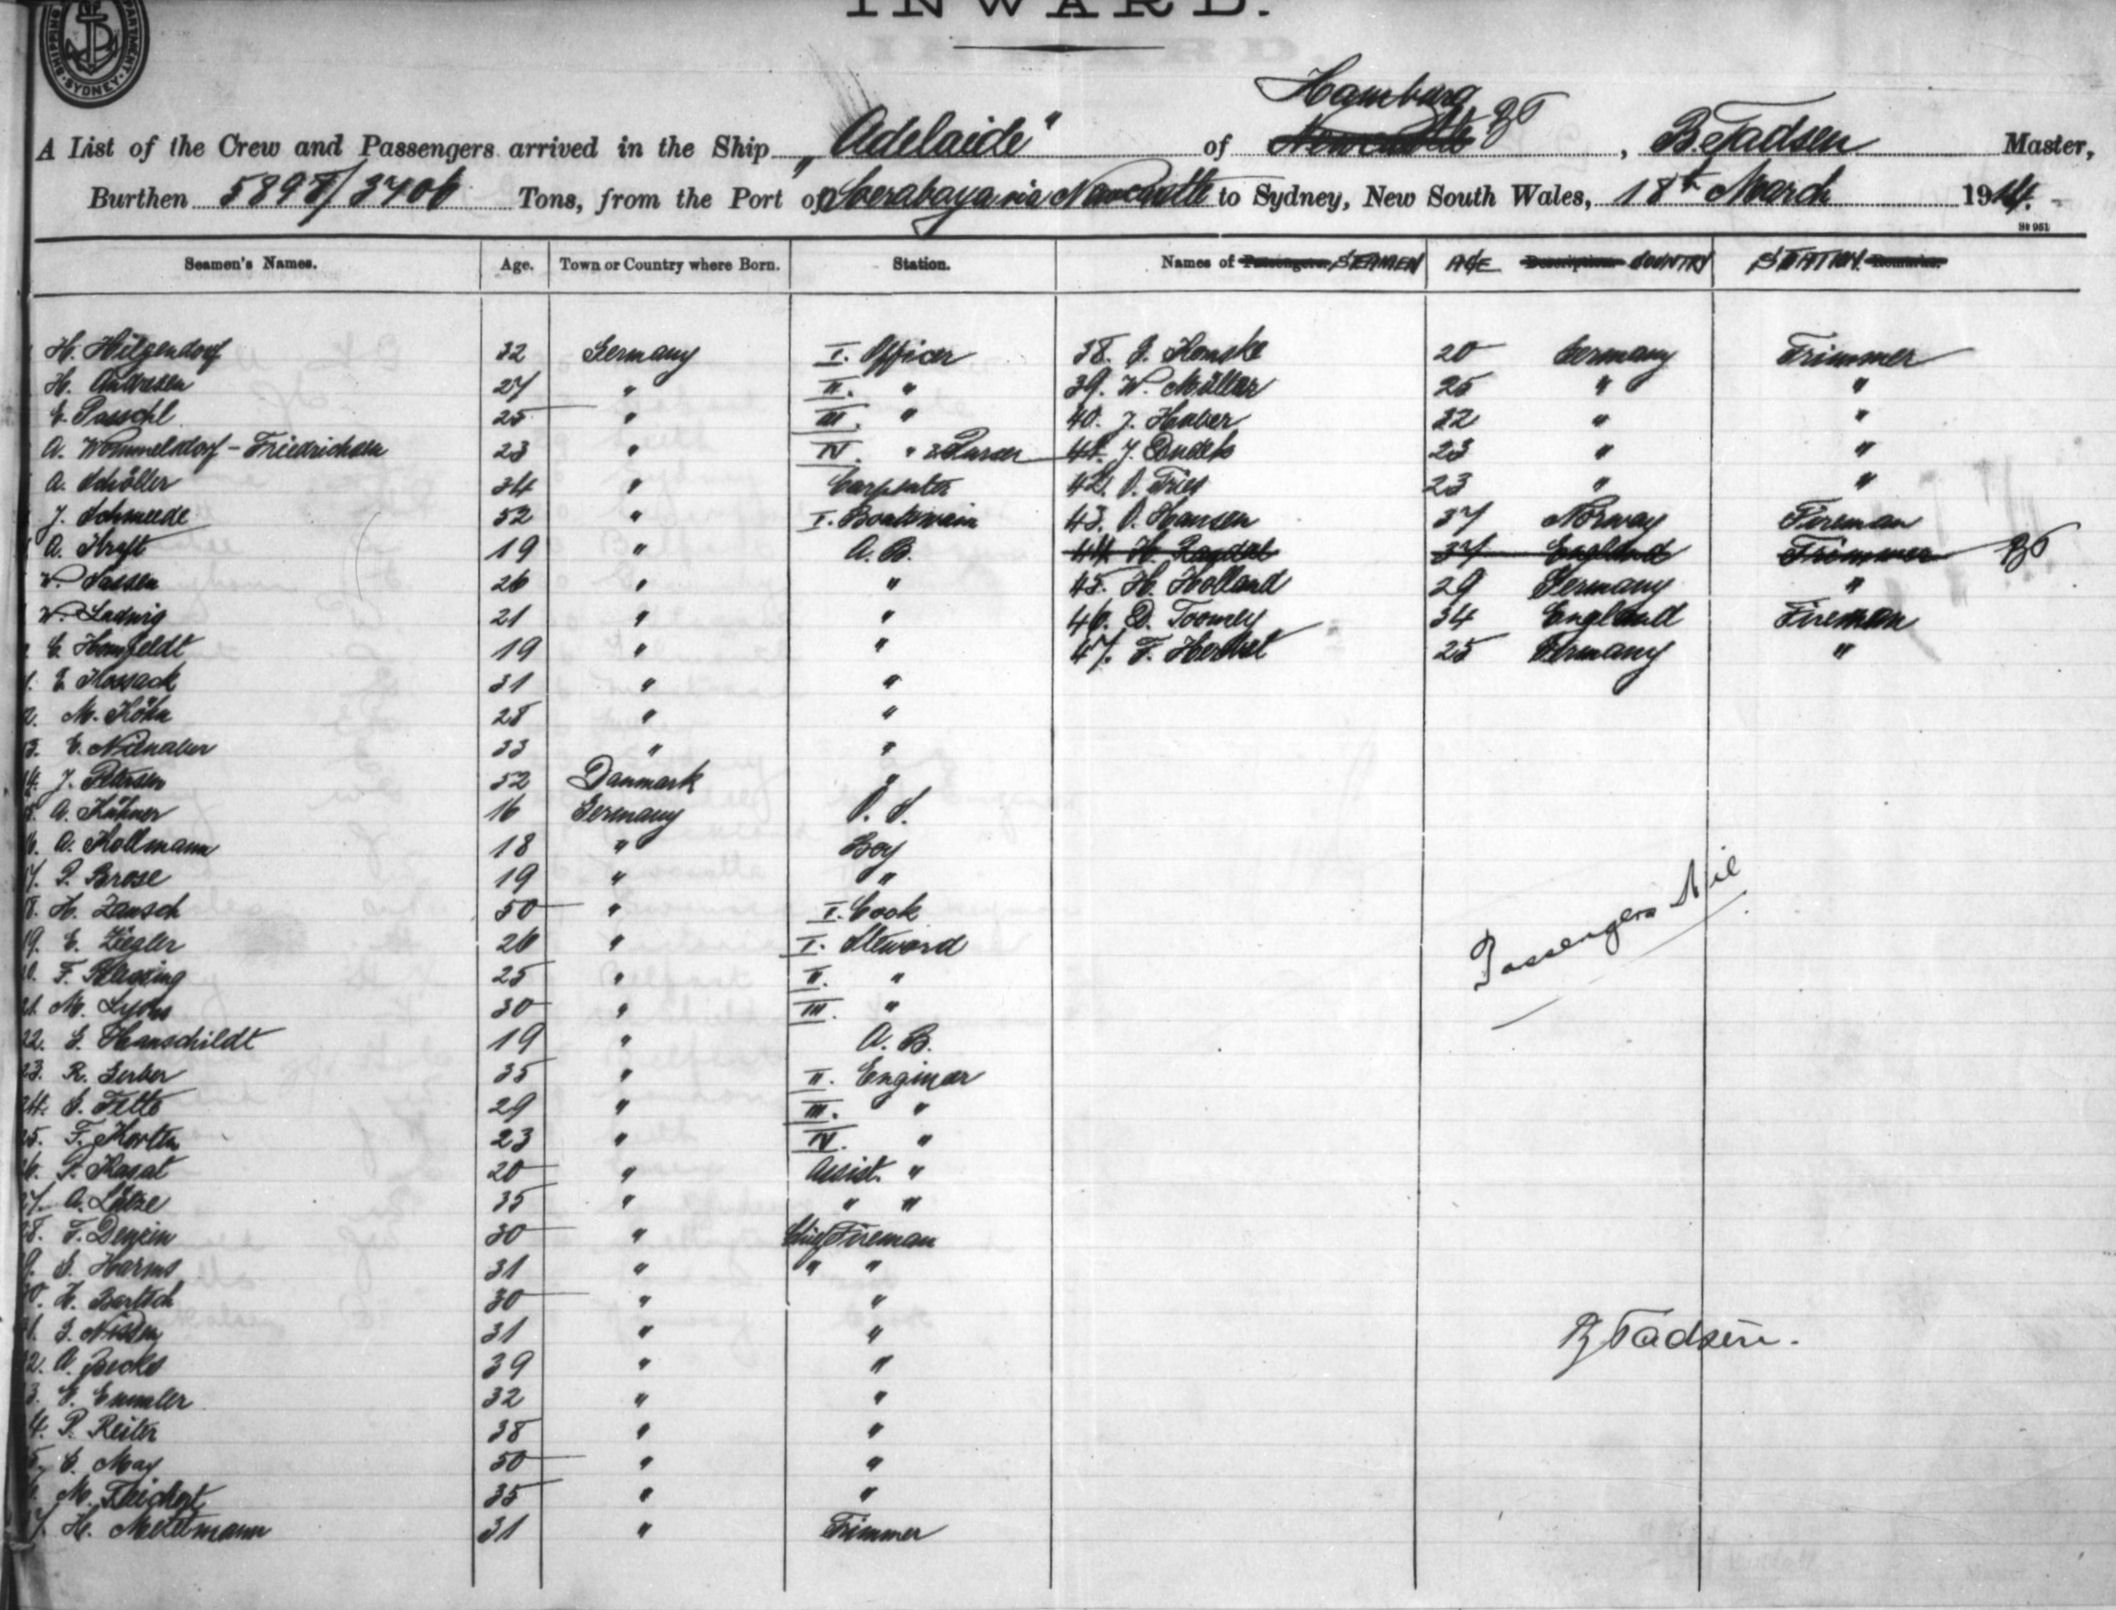 INWARD.
SHIPPING DEPARTMENT SYDNEY
Hamburg
A List of the Crew and Passengers arrived in the Ship "Adelaide" of Newcastle BT, B. Tadsen Master,
Burthen 5898/3706 Tons, from the Port of Soerabaya via Newcastle to Sydney, New South Wales, 18th March 1914.
St 951
Seamen's Names. Age. Town or Country where Born. Station. Names of Passengers SEAMEN AGE Description COUNTRY STATION Remarks.
H. Hilgendorf 32 Germany I. Officer 38. J. Honske 20 Germany Trimmer
H. Andresen 27 " II. " 39. W. Müller 25 " "
E. Paeschl 25 " III. " 40. J. Haber 22 " "
A. Wommelsdorf - Friedrichsen 23 " IV. " & Purser 41. J. Dudek 23 " "
A. Schöller 34 " Carpenter 42. O. Fries 23 " "
J. Schmeede 52 " I. Boatswain 43. O. Hansen 37 Norway Fireman
A. Kraft 19 " A. B. 44 H. 37 England Trimmer BT
W. Sassen 26 " " 45. H. Holland 29 Germany "
W. Ladwig 21 " " 46. D. Toomey 34 England Fireman
E. Homfeldt 19 " " 47. F. Herbst 25 Germany "
E. Kossack 31 " "
M. Köhn 28 " "
E. Nienaber 33 " "
J. Petersen 52 Danmark "
A. Kühner 16 Germany O. S.
A. Kollmann 18 " Boy
17. P. Brose 19 " "
18. H. Zansch 50 " I. Cook
19. E. Ziegler 26 " I. Steward
Passengers Nil
20. F. 25 " II. "
21. M. Lyons 30 " III. "
22. G. Hanschildt 19 " A. B.
23. R. Gerber 35 " II. Engineer
24. G. Fette 29 " III. "
25. F. Korten 23 " IV. "
26. P. Kasat 20 " Assist. "
27. A. Lütze 35 " " "
28. F. Degein 30 " Chief Fireman
29. G. Harms 31 " " "
30. H. Bartsch 30 " "
31. J. Nissen 31 " "
B Tadsen.
32. A. Jaecks 39 " "
33. E. Emmler 32 " "
34. P. Reiter 38 " "
35. C. May 50 " "
M. Teichert 35 " "
37. H. Mettmann 31 " Trimmer